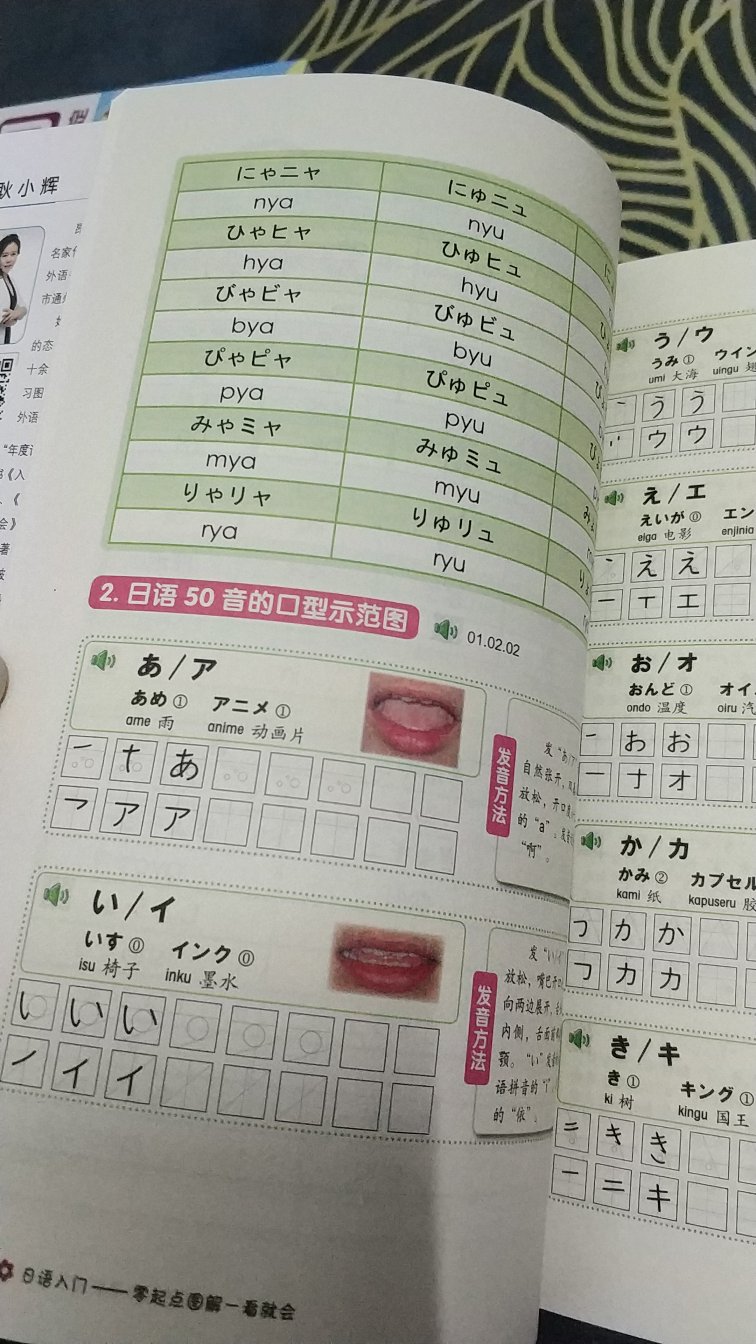 耿小辉
外语
的态
十余
习图
外语
にゃニャ にゅニュ
nya nyu
ひゃヒャ ひゅヒュ
hya hyu
びゃビャ びゅビュ
bya byu
ぴゃピャ ぴゅピュ
pya pyu
みゃミャ みゅミュ
mya myu
りゃリャ りゅリュ
rya ryu
2. 日语 50 音的口型示范图 01.02.02
あ / ア
あめ① アニメ①
ame 雨 anime 动画片
あ
ア ア
发音方法
自然张开，
放松，开口度
的“a”。发音
“啊”。
い / イ
いす⓪ インク⓪
isu 椅子 inku 墨水
い い
イ イ
发音方法
放松，嘴巴
向两边展开，
内侧，舌面
颚。“い”发音
语拼音的“i”
的“依”。
日语入门——零起点图解一看就会
う / ウ
うみ① ウイン
umi 大海 uingu
う う
ウ ウ
え / エ
えいが⓪ エン
eiga 电影 enjinia
え え
エ
お / オ
おんど① オイ
ondo 温度 oiru 汽
お お
オ
か / カ
かみ② カプセル
kami 纸 kapuseru 胶
カ か
カ カ
き / キ
き① キング①
ki 树 kingu 国王
き
キ